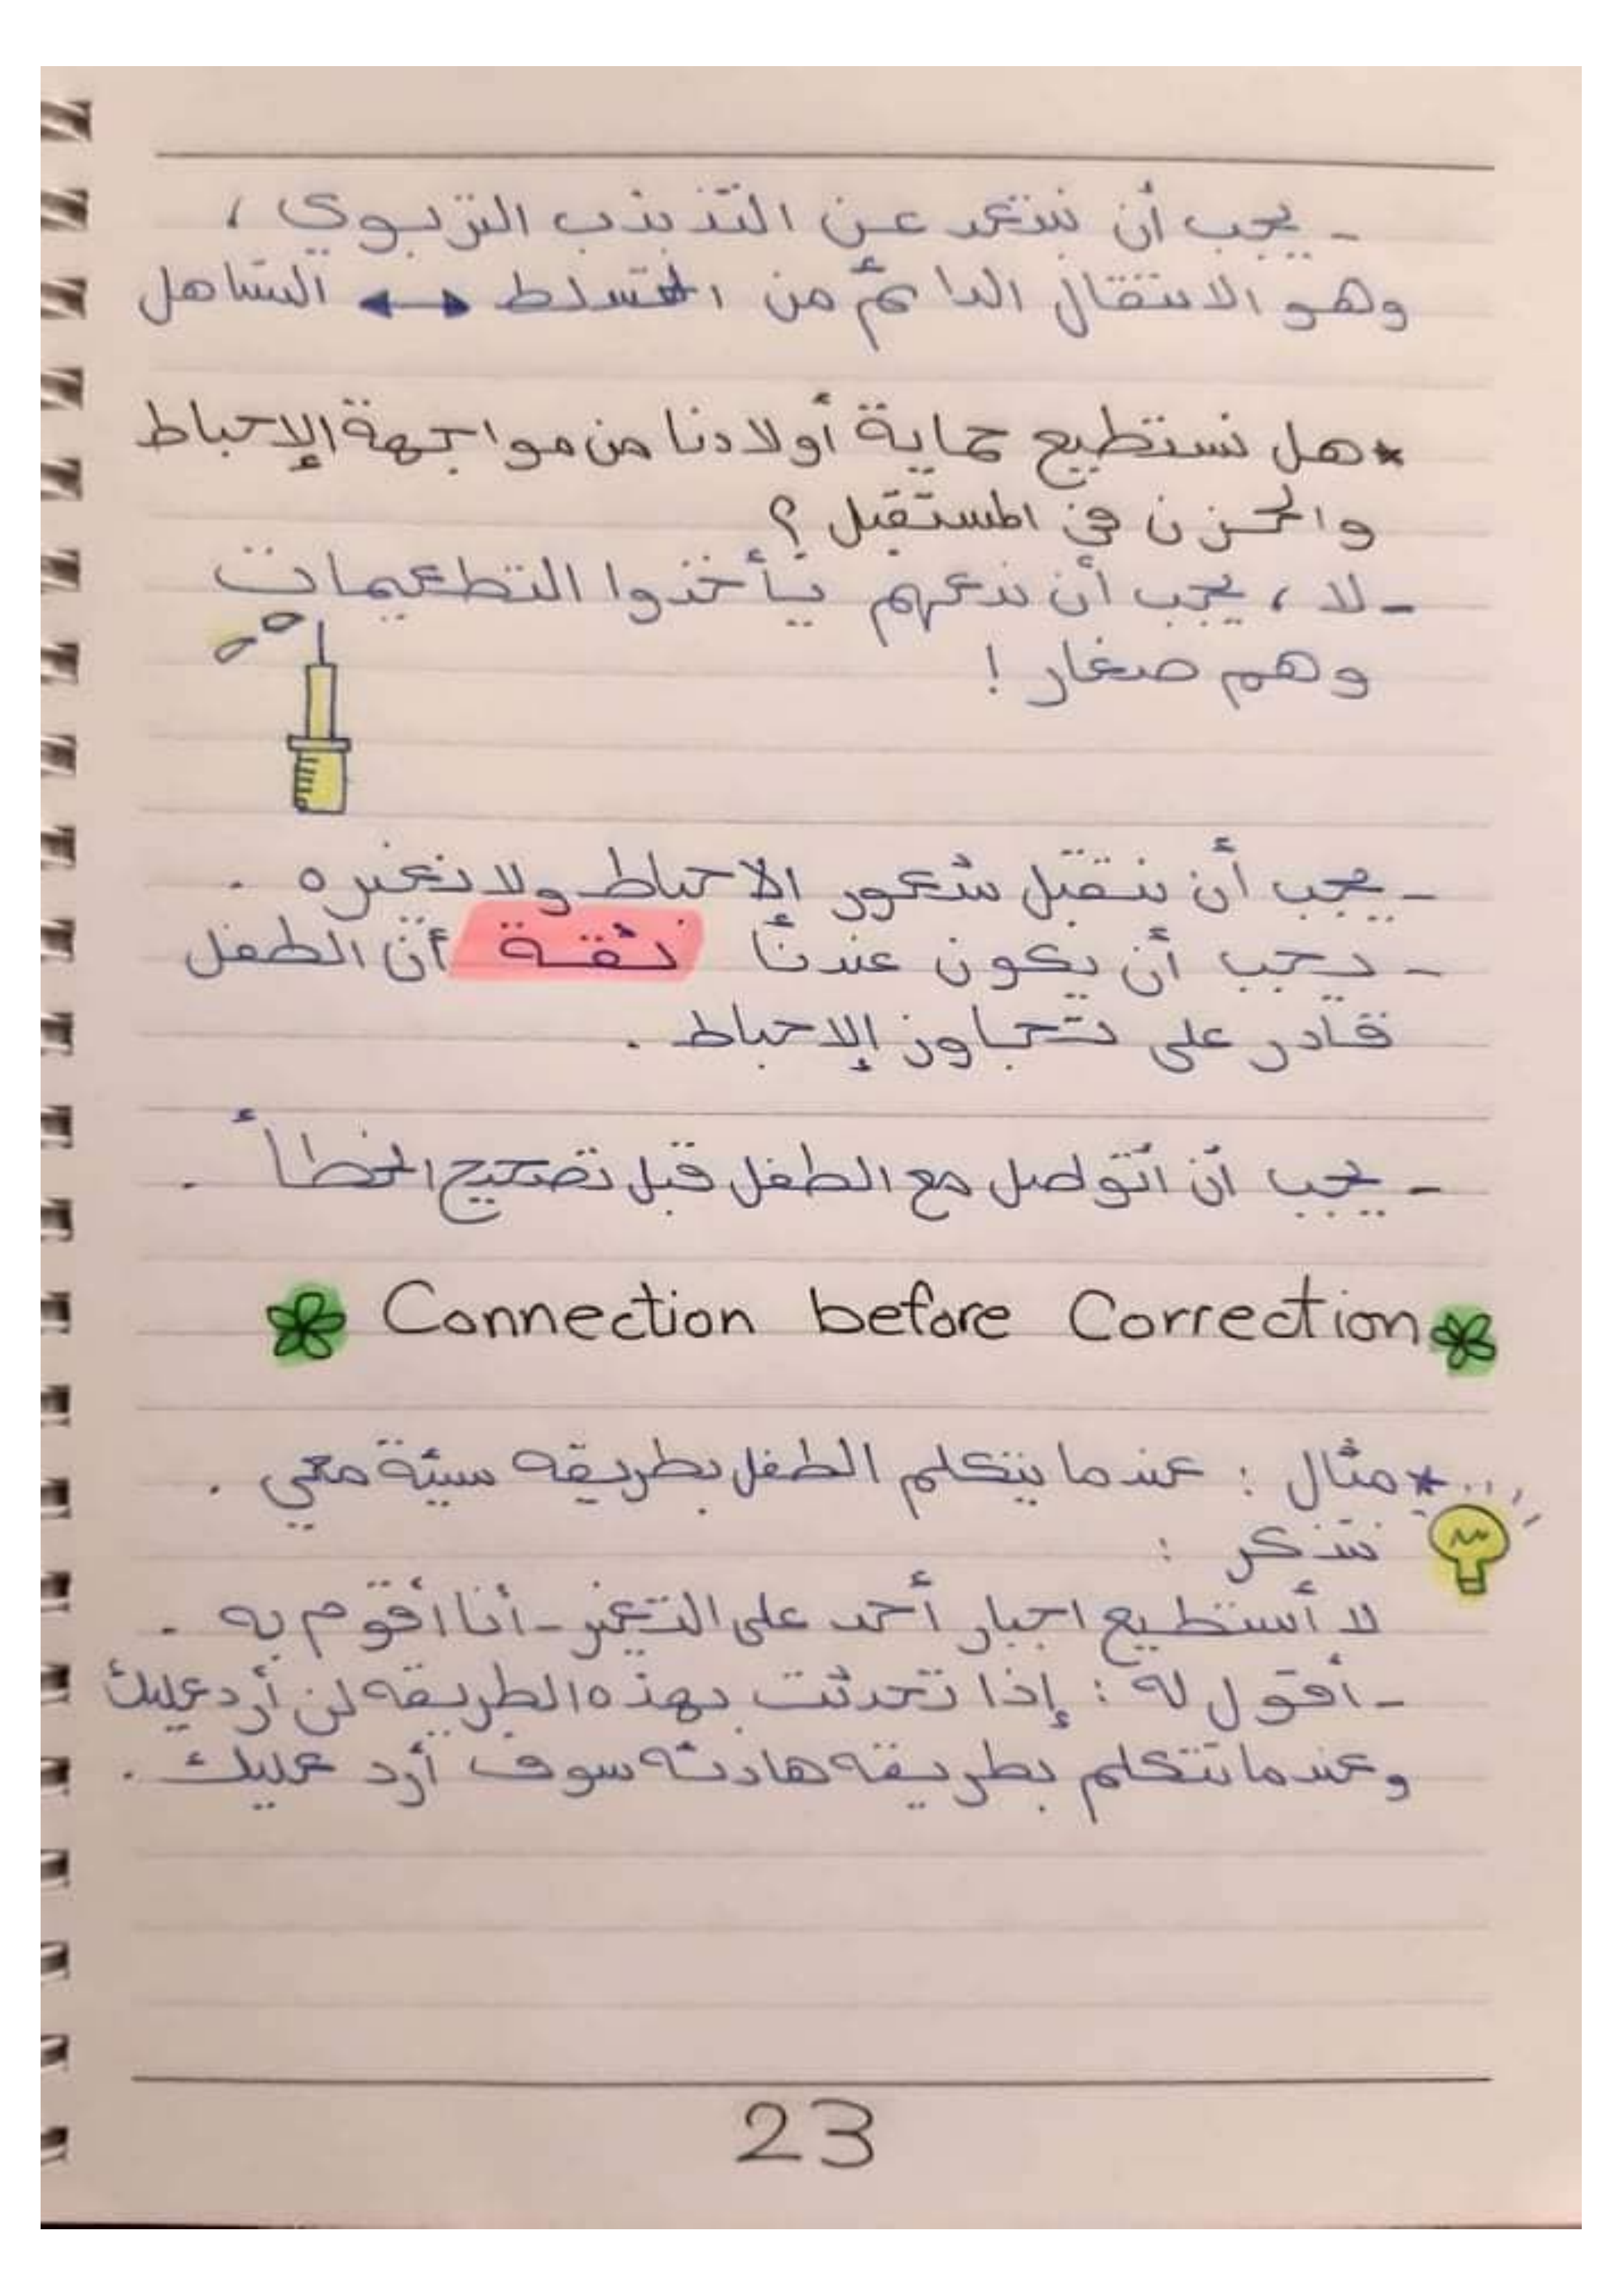 - يجب أن نبتعد عن التذبذب التربوي ،
وهو الانتقال الدائم من التسلط ↔ التساهل
* هل نستطيع حماية أولادنا من مواجهة الإحباط
والحزن في المستقبل ؟
- لا ، يجب أن ندعهم يأخذوا التطعيمات
وهم صغار !
- يجب أن نتقبل شعور الاحباط ولا نغيره .
- يجب أن يكون عندنا ثقة أن الطفل
قادر على تجاوز الإحباط .
- يجب أن أتواصل مع الطفل قبل تصحيح الخطأ .
Connection before Correction
* مثال : عندما يتكلم الطفل بطريقه سيئة معي .
نتذكر :
لا أستطيع اجبار أحد على التغير - أنا أقوم به .
- أقول له : إذا تحدثت بهذه الطريقه لن أرد عليك
وعندما تتكلم بطريقه هادئه سوف أرد عليك .
23